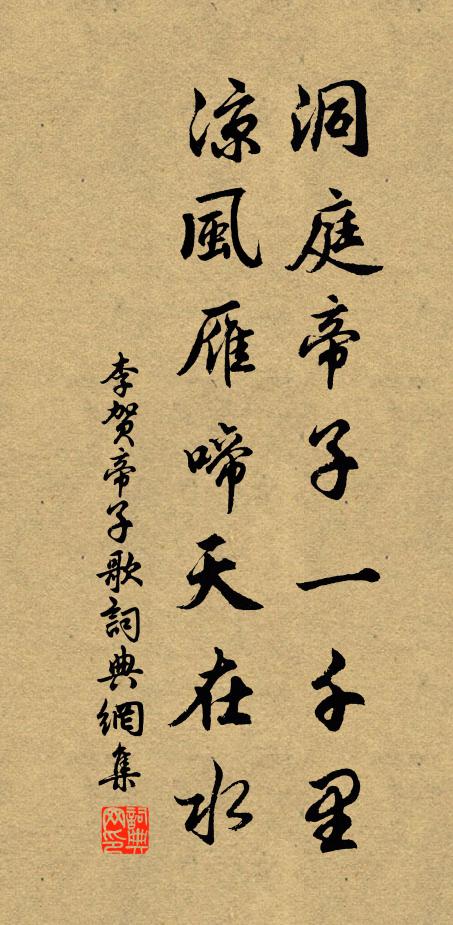 洞庭帝子一千里
凉風雁啼天在水
李贺帝子歌詞典網集
詞典
网印